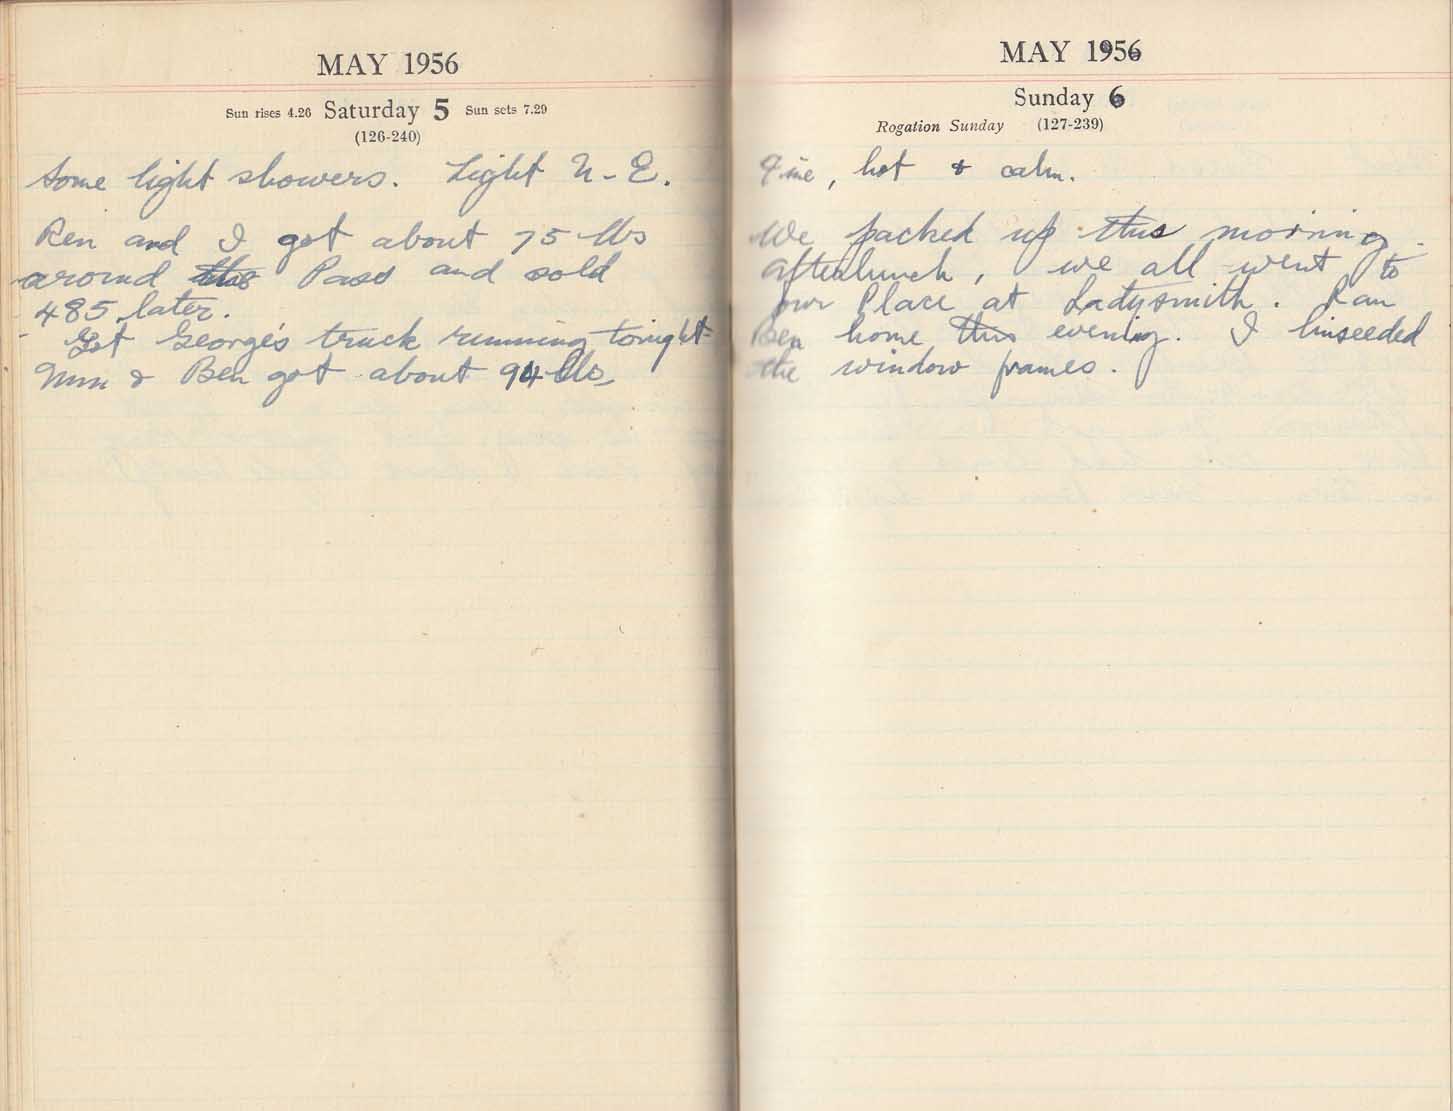 MAY 1956
Sun rises 4.26 Saturday 5 Sun sets 7.29
(126-240)
Some light showers. Light N-E.
Ren and I got about 75 lbs
around the Pass and sold
485 later.
Got George's truck running tonight
Mum & Ben got about 94 lbs
MAY 1956
Sunday 6
Rogation Sunday (127-239)
Fine, hot & calm.
We packed up this morning.
After lunch, we all went to
our Place at Ladysmith. Ran
Ben home this evening. I linseeded
the window frames.